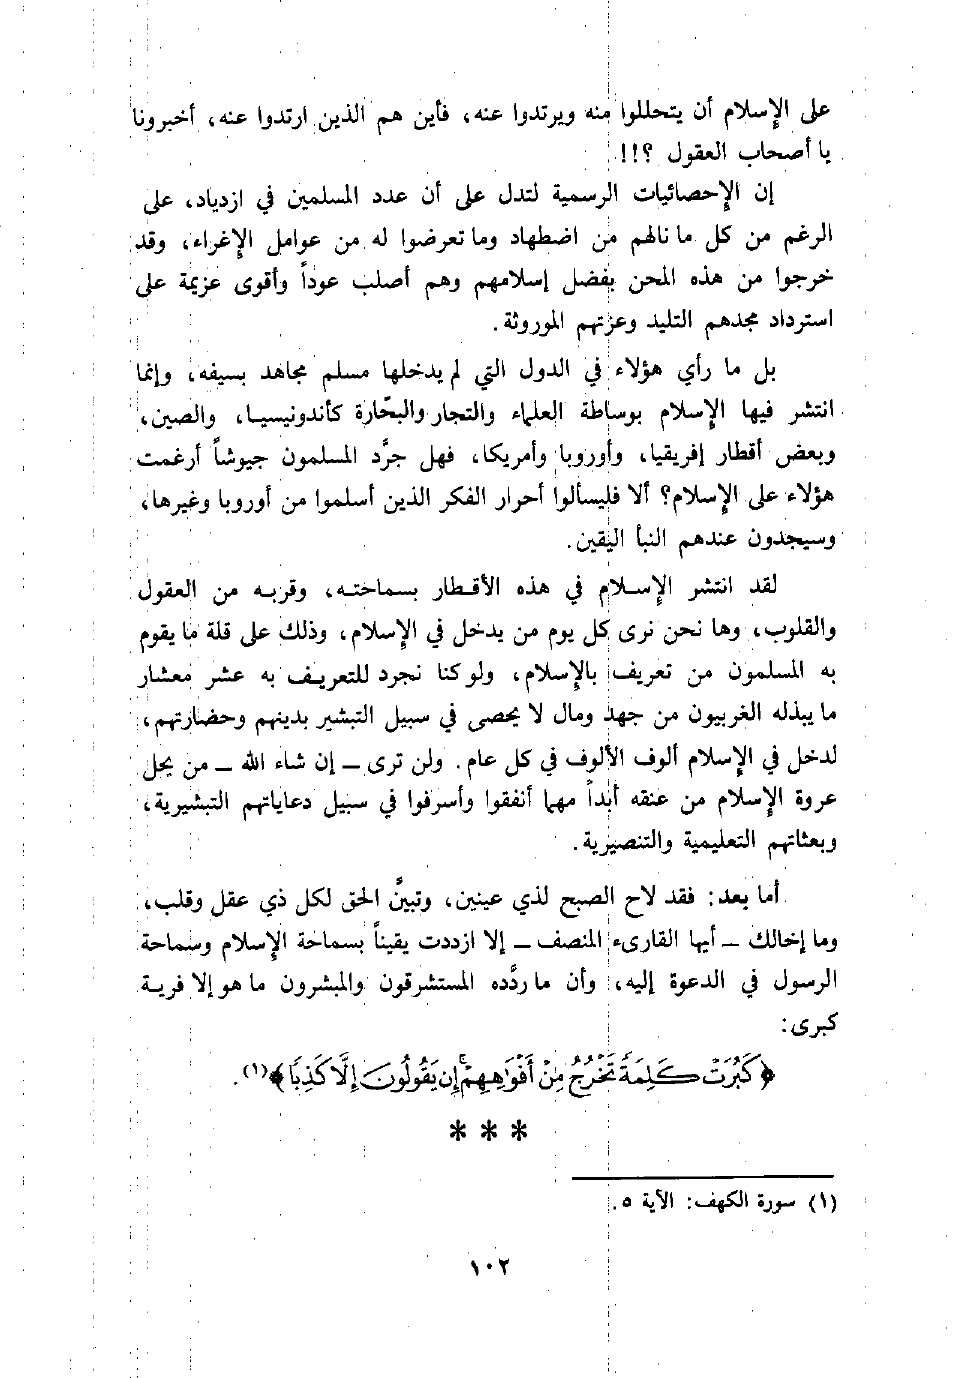 على الإسلام أن يتحللوا منه ويرتدوا عنه، فأين هم الذين ارتدوا عنه، أخبرونا
يا أصحاب العقول ؟!!
إن الإحصائيات الرسمية لتدل على أن عدد المسلمين في ازدياد، على
الرغم من كل ما نالهم من اضطهاد وما تعرضوا له من عوامل الإغراء، وقد
خرجوا من هذه المحن بفضل إسلامهم وهم أصلب عوداً وأقوى عزيمة على
استرداد مجدهم التليد وعزتهم الموروثة.
بل ما رأي هؤلاء في الدول التي لم يدخلها مسلم مجاهد بسيفه، وإنما
انتشر فيها الإسلام بوساطة العلماء والتجار والبحّارة كأندونيسيا، والصين،
وبعض أقطار إفريقيا، وأوروبا وأمريكا، فهل جرَّد المسلمون جيوشاً أرغمت
هؤلاء على الإسلام؟ ألا فليسألوا أحرار الفكر الذين أسلموا من أوروبا وغيرها،
وسيجدون عندهم النبأ اليقين.
لقد انتشر الإسلام في هذه الأقطار بسماحته، وقربه من العقول
والقلوب، وها نحن نرى كل يوم من يدخل في الإسلام، وذلك على قلة ما يقوم
به المسلمون من تعريف بالإسلام، ولو كنا نجرد للتعريف به عشر معشار
ما يبذله الغربيون من جهد ومال لا يحصى في سبيل التبشير بدينهم وحضارتهم،
لدخل في الإسلام ألوف الألوف في كل عام. ولن ترى ــ إن شاء الله ــ من يحل
عروة الإسلام من عنقه أبداً مهما أنفقوا وأسرفوا في سبيل دعاياتهم التبشيرية،
وبعثاتهم التعليمية والتنصيرية.
أما بعد: فقد لاح الصبح لذي عينين، وتبيَّن الحق لكل ذي عقل وقلب،
وما إخالك ــ أيها القارىء المنصف ــ إلا ازددت يقيناً بسماحة الإسلام وسماحة
الرسول في الدعوة إليه، وأن ما ردَّده المستشرقون والمبشرون ما هو إلا فرية
كبرى:
﴿كَبُرَتْ كَلِمَةً تَخْرُجُ مِنْ أَفْوَاهِهِمْ إِن يَقُولُونَ إِلَّا كَذِبًا﴾(١).
* * *
(١) سورة الكهف: الآية ٥.
١٠٢